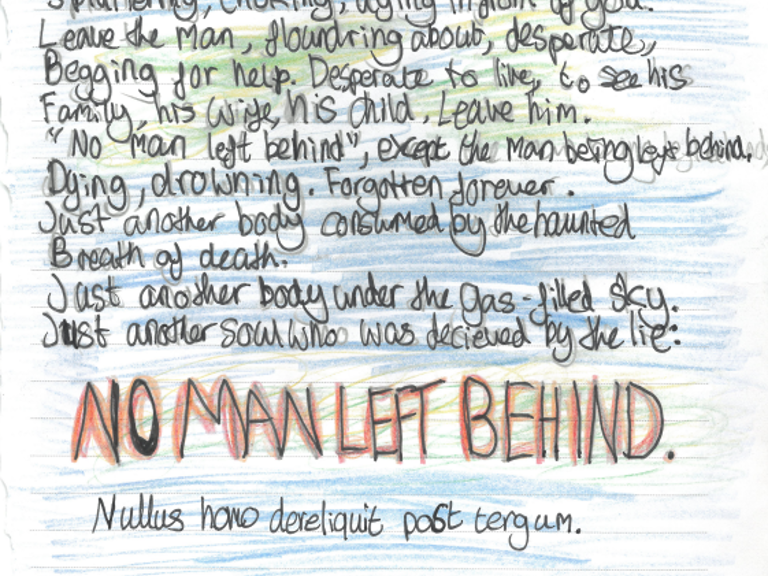 Spluttering, choking, dying in front of you.
Leave the man, floundring about, desperate,
Begging for help. Desperate to live, to see his
Family, his wife, his child. Leave him.
"No man left behind", except the man being left behind.
Dying, drowning. Forgotten forever.
Just another body consumed by the haunted
Breath of death.
Just another body under the gas-filled sky.
Just another soul who was decieved by the lie:
NO MAN LEFT BEHIND.
Nullus homo dereliquit post tergum.